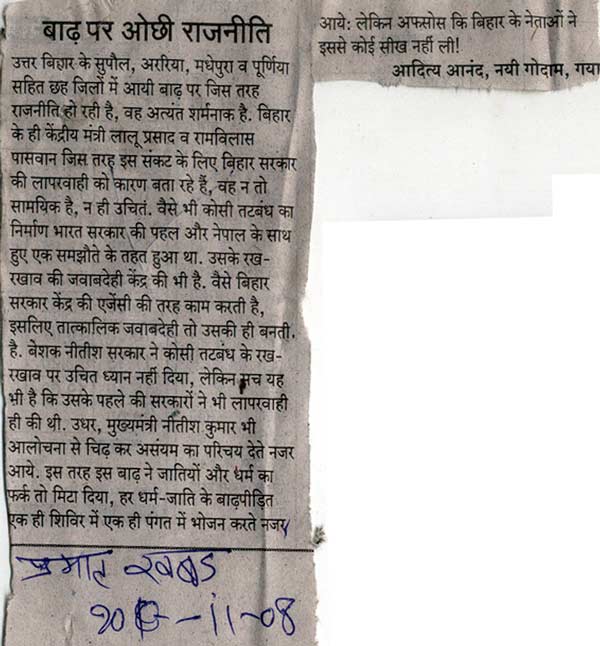 बाढ़ पर ओछी राजनीति
उत्तर बिहार के सुपौल, अररिया, मधेपुरा व पूर्णिया
सहित छह जिलों में आयी बाढ़ पर जिस तरह
राजनीति हो रही है, वह अत्यंत शर्मनाक है. बिहार
के ही केंद्रीय मंत्री लालू प्रसाद व रामविलास
पासवान जिस तरह इस संकट के लिए बिहार सरकार
की लापरवाही को कारण बता रहे हैं, वह न तो
सामयिक है, न ही उचितं. वैसे भी कोसी तटबंध का
निर्माण भारत सरकार की पहल और नेपाल के साथ
हुए एक समझौते के तहत हुआ था. उसके रख-
रखाव की जवाबदेही केंद्र की भी है. वैसे बिहार
सरकार केंद्र की एजेंसी की तरह काम करती है,
इसलिए तात्कालिक जवाबदेही तो उसकी ही बनती.
है. बेशक नीतीश सरकार ने कोसी तटबंध के रख-
रखाव पर उचित ध्यान नहीं दिया, लेकिन सच यह
भी है कि उसके पहले की सरकारों ने भी लापरवाही
ही की थी. उधर, मुख्यमंत्री नीतीश कुमार भी
आलोचना से चिढ़ कर असंयम का परिचय देते नजर
आये. इस तरह इस बाढ़ ने जातियों और धर्म का
फर्क तो मिटा दिया, हर धर्म-जाति के बाढ़पीड़ित
एक ही शिविर में एक ही पंगत में भोजन करते नजर
आये: लेकिन अफसोस कि बिहार के नेताओं ने
इससे कोई सीख नहीं ली!
आदित्य आनंद, नयी गोदाम, गया
प्रभात खबर
-11-08